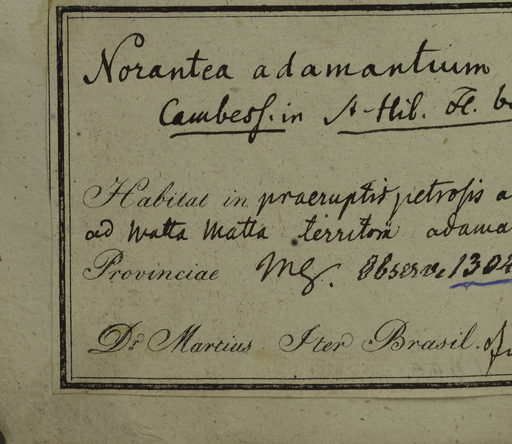 Norantea adamantium
Cambess. in St Hil. Fl. b
Habitat in praeruptis petrosis a
ad Matta Matta territor adama
Provinciae MG. Observ. 1304
Dr Martius Iter Brasil.